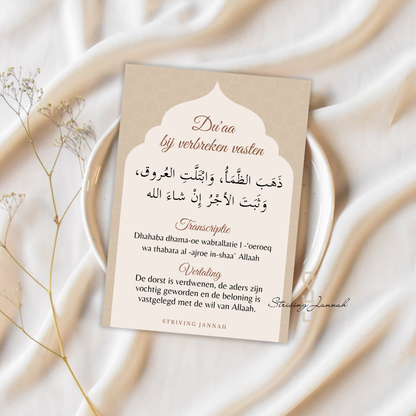 Du'aa
bij verbreken vasten
ذَهَبَ الظَّمَأُ، وَابْتَلَّتِ العُروق،
وَثَبَتَ الأجْرُ إِنْ شاءَ الله
Transcriptie
Dhahaba dhama-oe wabtallatie l -'oeroeq
wa thabata al -ajroe in-shaa` Allaah
Vertaling
De dorst is verdwenen, de aders zijn
vochtig geworden en de beloning is
vastgelegd met de wil van Allaah.
STRIVING JANNAH
Striving Jannah